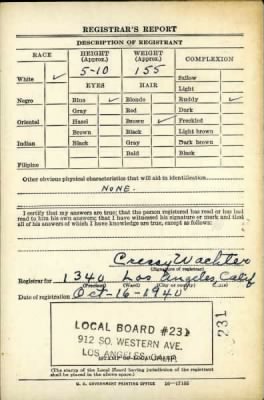 REGISTRAR'S REPORT
DESCRIPTION OF REGISTRANT
RACE HEIGHT (Approx.) WEIGHT (Approx.) COMPLEXION
White ✓ 5-10 155 Sallow
EYES HAIR Light
Negro Blue ✓ Blonde Ruddy ✓
Gray Red Dark
Oriental Hazel Brown ✓ Freckled
Brown Black Light brown
Indian Black Gray Dark brown
Bald Black
Filipino
Other obvious physical characteristics that will aid in identification
NONE.
I certify that my answers are true; that the person registered has read or has had
read to him his own answers; that I have witnessed his signature or mark and that
all of his answers of which I have knowledge are true, except as follows:
Cressy Wachter
(Signature of registrar)
Registrar for 1340 Los Angeles Calif
(Precinct) (Ward) (City or county) (State)
Date of registration Oct-16-1940
LOCAL BOARD #231
912 SO. WESTERN AVE.
LOS ANGELES,
231
(The stamp of the Local Board having jurisdiction of the registrant
shall be placed in the above space.)
U. S. GOVERNMENT PRINTING OFFICE 16-17105